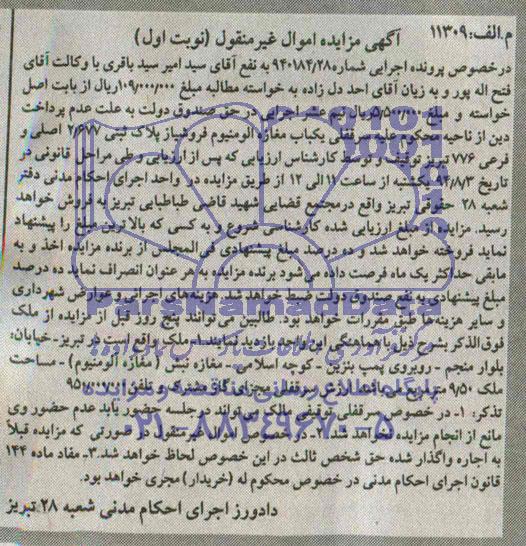 م.الف:۱۱۳۰۹
آگهی مزایده اموال غیرمنقول (نوبت اول)
درخصوص پرونده اجرایی شماره ۹۴۰۱۸۴/۲۸ به نفع آقای سید امیر سید باقری با وکالت آقای
فتح اله پور و به زیان آقای احد دل زاده به خواسته مطالبه مبلغ ۱۰۹/۰۰۰/۰۰۰ریال از بابت اصل
خواسته و مبلغ ریال نیم عشر اجرایی در حق صندوق دولت به علت عدم پرداخت
دین از ناحیه محکوم علیه سرقفلی یکباب مغازه آلومنیوم فروشی پلاک ثبتی ۲/۶۷۷ اصلی و
فرعی ۷۷۶ تبریز توقیف و توسط کارشناس ارزیابی که پس از ارزیابی و طی مراحل قانونی در
تاریخ یکشنبه از ساعت ۱۱ الی ۱۲ از طریق مزایده در واحد اجرای احکام مدنی دفتر
شعبه ۲۸ حقوقی تبریز واقع درمجتمع قضایی شهید قاضی طباطبایی تبریز به فروش خواهد
رسید. مزایده از مبلغ ارزیابی شده کارشناسی شروع و به کسی که بالاترین مبلغ را پیشنهاد
نماید فروخته خواهد شد و ده درصد مبلغ پیشنهادی فی المجلس از برنده مزایده اخذ و به
مابقی حداکثر یک ماه فرصت داده می شود برنده مزایده به هر عنوان انصراف نماید ده درصد
مبلغ پیشنهادی به نفع صندوق دولت ضبط خواهد شد. هزینه های اجرایی و عوارض شهرداری
و سایر هزینه ها طبق مقررات خواهد بود. طالبین می توانند پنج روز قبل از مزایده از ملک
فوق الذکر بشرح ذیل با هماهنگی این واحد بازدید نمایند.۱- ملک واقع است در تبریز- خیابان:
بلوار منجم - روبروی پمپ بنزین - کوچه اسلامی- مغازه نبش (مغازه آلومنیوم) - مساحت
ملک ۹/۵۰ متر سرقفلی مجزای گاز مشترک و تلفن
تذکر: ۱- در خصوص سرقفلی توقیفی مالک می تواند در جلسه حضور یابد عدم حضور وی
مانع از انجام مزایده نخواهد شد. ۲- در خصوص اموال غیرمنقول در صورتی که مزایده قبلاً
به اجاره واگذار شده حق شخص ثالث در این خصوص لحاظ خواهد شد.۳- مفاد ماده ۱۴۴
قانون اجرای احکام مدنی در خصوص محکوم له (خریدار) مجری خواهد بود.
دادورز اجرای احکام مدنی شعبه ۲۸ تبریز
ParsNamadData
پایگاه اطلاع رسانی مناقصه و مزایده
۰۲۱-۸۸۳۴۹۶۷۰-۵